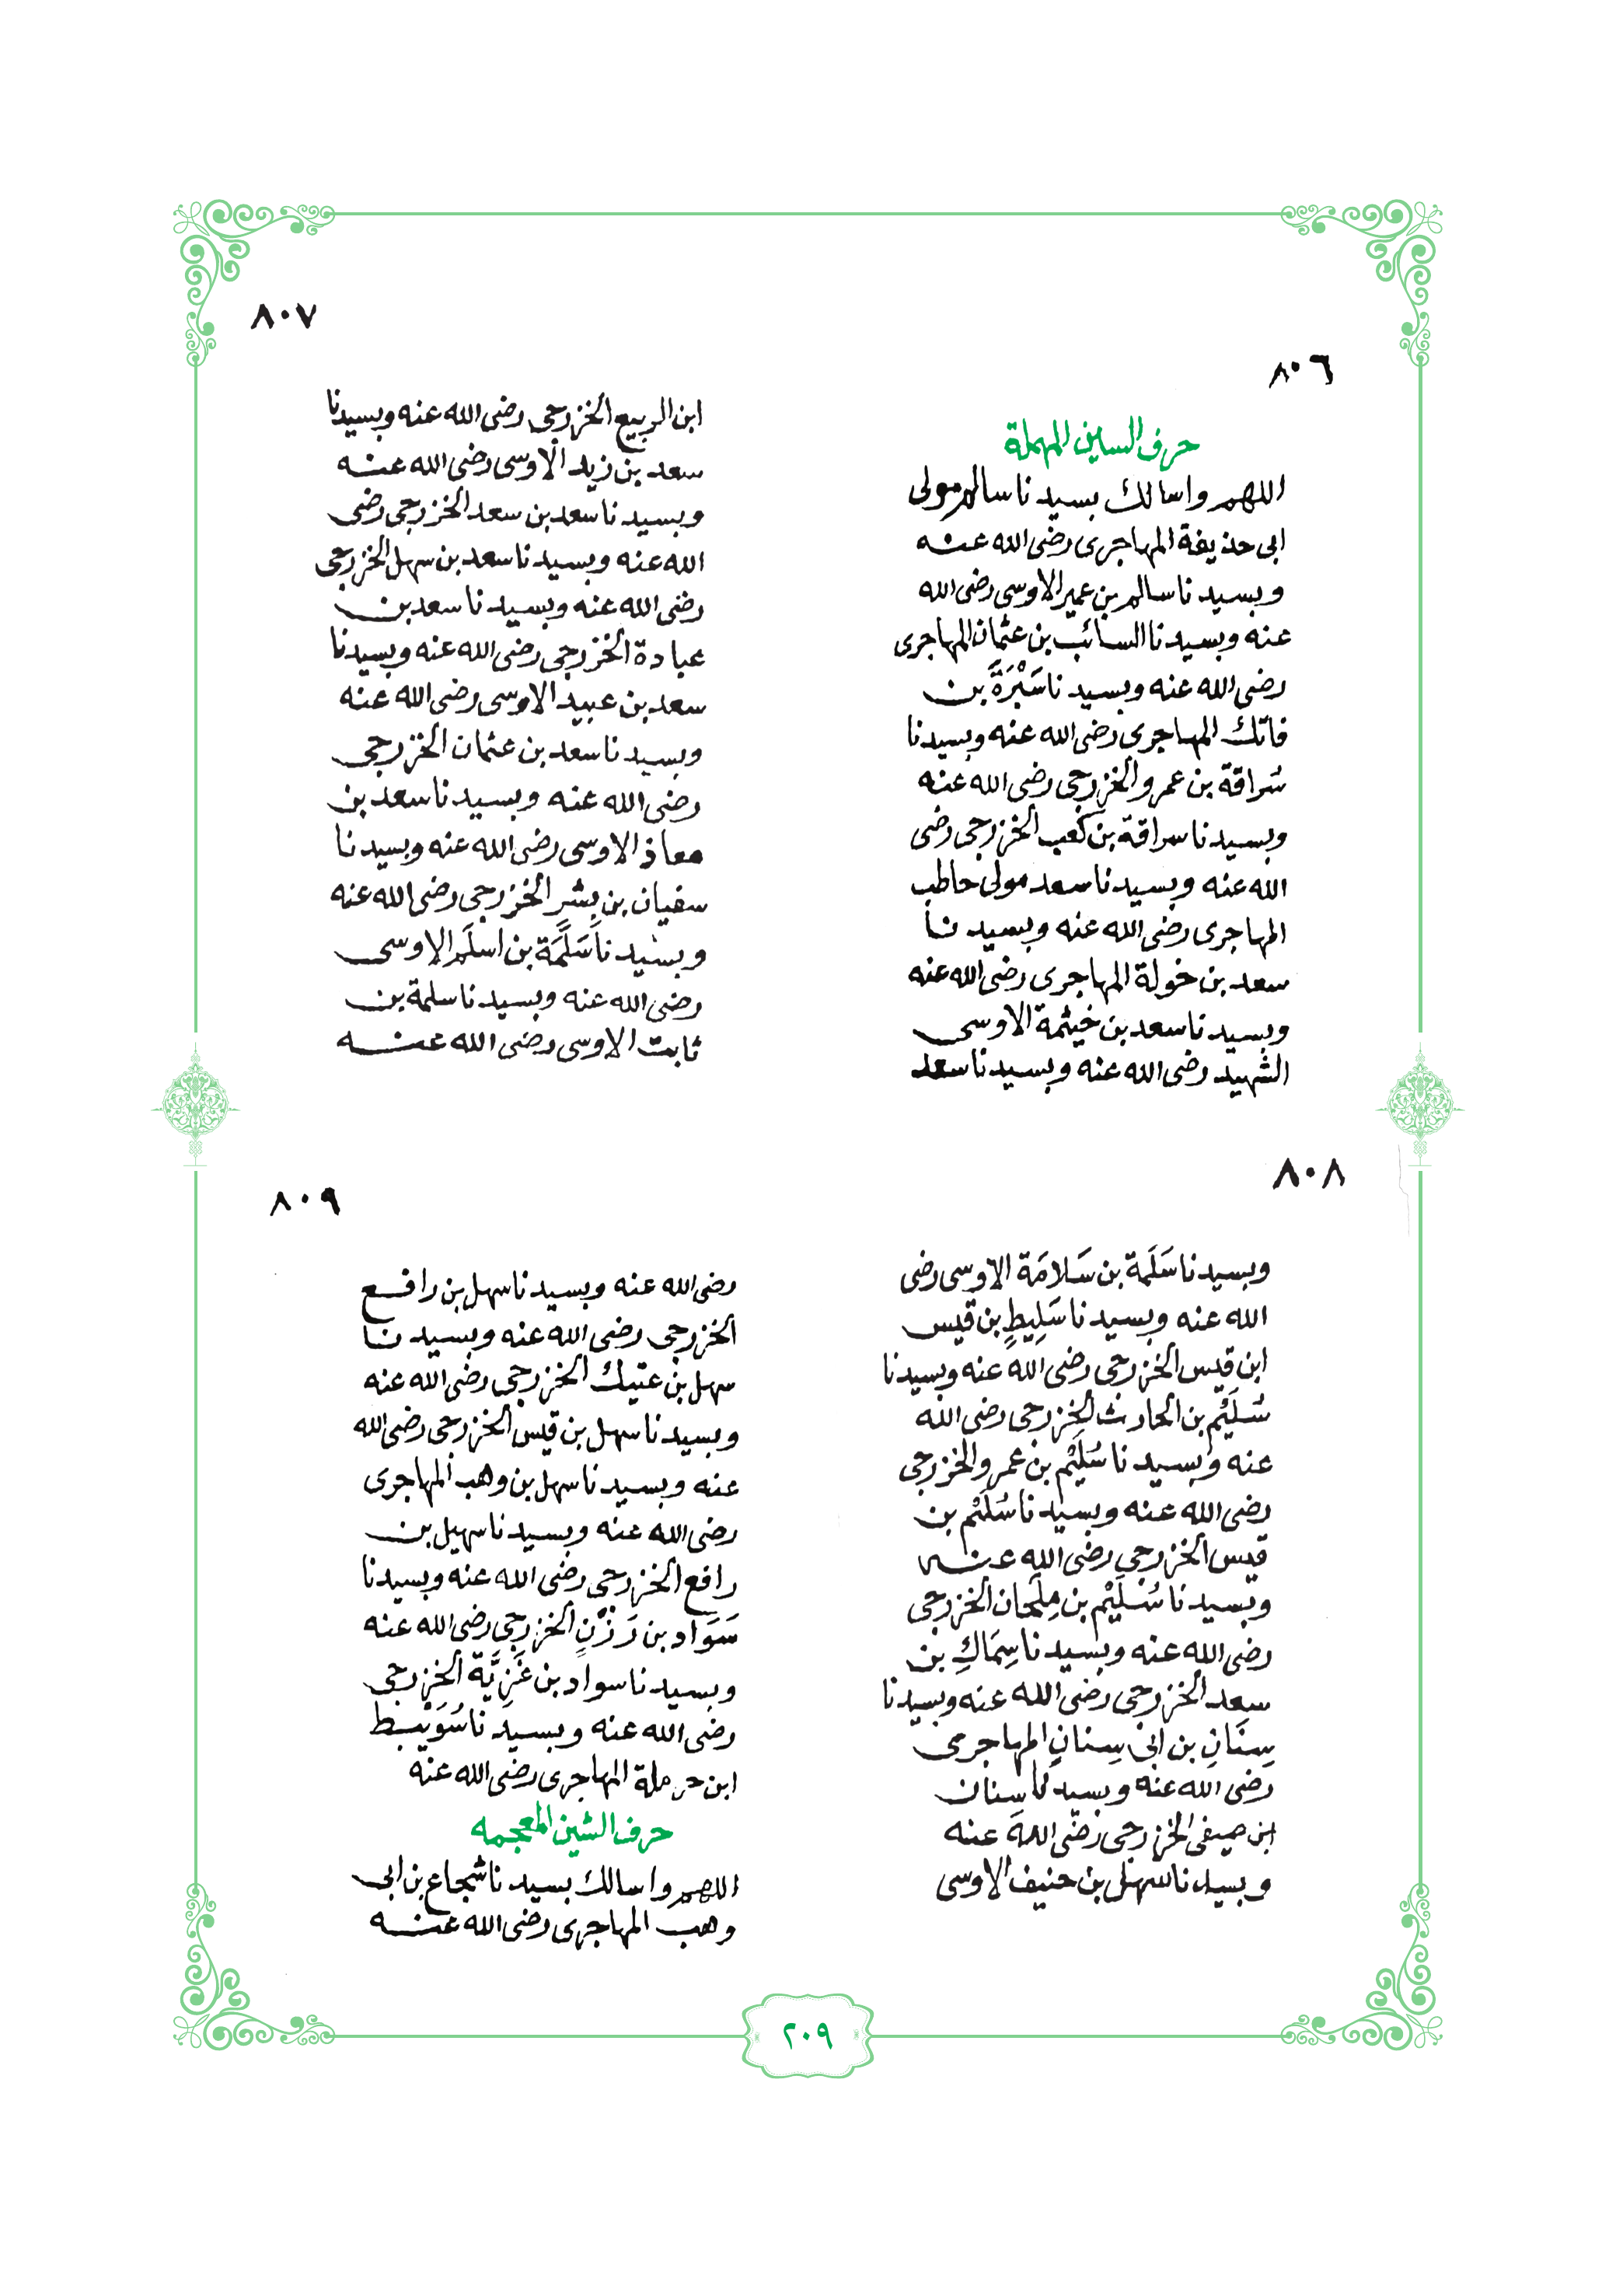 ٨٠٦
حرف السين المهملة
اللهم واسالك بسيدنا سالم مولى
ابى حذيفة المهاجرى رضى الله عنه
وبسيدنا سالم بن عمير الاوسى رضى الله
عنه وبسيدنا السائب بن عثمان المهاجرى
رضى الله عنه وبسيدنا سَبْرَةَ بن
فاتك المهاجرى رضى الله عنه وبسيدنا
سُراقة بن عمرو الخزرجى رضى الله عنه
وبسيدنا سراقة بن كعب الخزرجى رضى
الله عنه وبسيدنا سعد مولى حاطب
المهاجرى رضى الله عنه وبسيدنا
سعد بن خولة المهاجرى رضى الله عنه
وبسيدنا سعد بن خيثمة الاوسى
الشهيد رضى الله عنه وبسيدنا سعد
٨٠٧
ابن الربيع الخزرجى رضى الله عنه وبسيدنا
سعد بن زيد الاوسى رضى الله عنه
وبسيدنا سعد بن سعد الخزرجى رضى
الله عنه وبسيدنا سعد بن سهل الخزرجى
رضى الله عنه وبسيدنا سعد بن
عبادة الخزرجى رضى الله عنه وبسيدنا
سعد بن عبيد الاوسى رضى الله عنه
وبسيدنا سعد بن عثمان الخزرجى
رضى الله عنه وبسيدنا سعد بن
معاذ الاوسى رضى الله عنه وبسيدنا
سفيان بن بشر الخزرجى رضى الله عنه
وبسيدنا سَلَمَة بن اسلَم الاوسى
رضى الله عنه وبسيدنا سلمة بن
ثابت الاوسى رضى الله عنه
٨٠٨
وبسيدنا سَلَمَة بن سَلامَة الاوسى رضى
الله عنه وبسيدنا سَلِيطِ بن قيس
ابن قيس الخزرجى رضى الله عنه وبسيدنا
سُلَيْم بن الحارث الخزرجى رضى الله
عنه وبسيدنا سُلَيْم بن عمرو الخزرجى
رضى الله عنه وبسيدنا سُلَيْم بن
قيس الخزرجى رضى الله عنه
وبسيدنا سُلَيْم بن مِلحان الخزرجى
رضى الله عنه وبسيدنا سِمَاكِ بن
سعد الخزرجى رضى الله عنه وبسيدنا
سِنَانِ بن ابى سِنانِ المهاجرى
رضى الله عنه وبسيدنا سِنان
ابن صيفى الخزرجى رضى الله عنه
وبسيدنا سهل بن حنيف الاوسى
٨٠٩
رضى الله عنه وبسيدنا سهل بن رافع
الخزرجى رضى الله عنه وبسيدنا
سهل بن عتيك الخزرجى رضى الله عنه
وبسيدنا سهل بن قيس الخزرجى رضى الله
عنه وبسيدنا سهل بن وهب المهاجرى
رضى الله عنه وبسيدنا سهيل بن
رافع الخزرجى رضى الله عنه وبسيدنا
سَوَاد بن رَزْنٍ الخزرجى رضى الله عنه
وبسيدنا سواد بن غَزِيَّة الخزرجى
رضى الله عنه وبسيدنا سُوَيْبط
ابن حرملة المهاجرى رضى الله عنه
حرف الشين المعجمه
اللهم واسالك بسيدنا شجاع بن ابى
وهب المهاجرى رضى الله عنه
٢٠٩